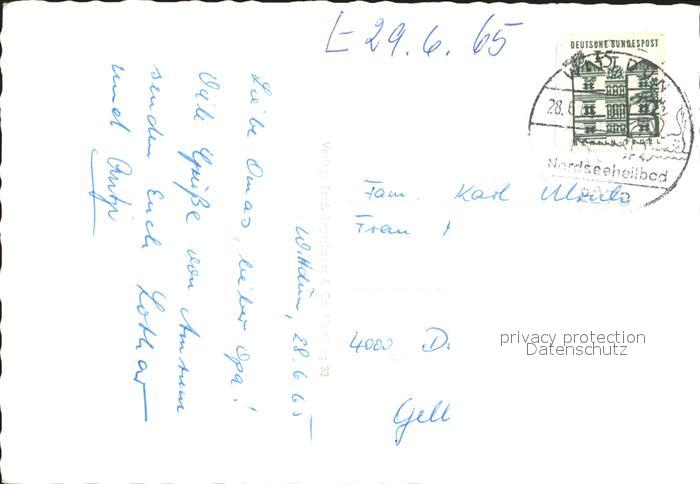 L 29.6.65
DEUTSCHE BUNDESPOST
WITTDÜN
28.6.
Nordseeheilbad
Wittdün, 28.6.65
Liebe Omas, lieber Opa!
Viele Grüße von Amrum
senden Euch Lothar
und Antje
Verlag Ferd. & Co. Hamburg 33
Fam. Karl
Frau
4000 D.
Gell
privacy protection
Datenschutz